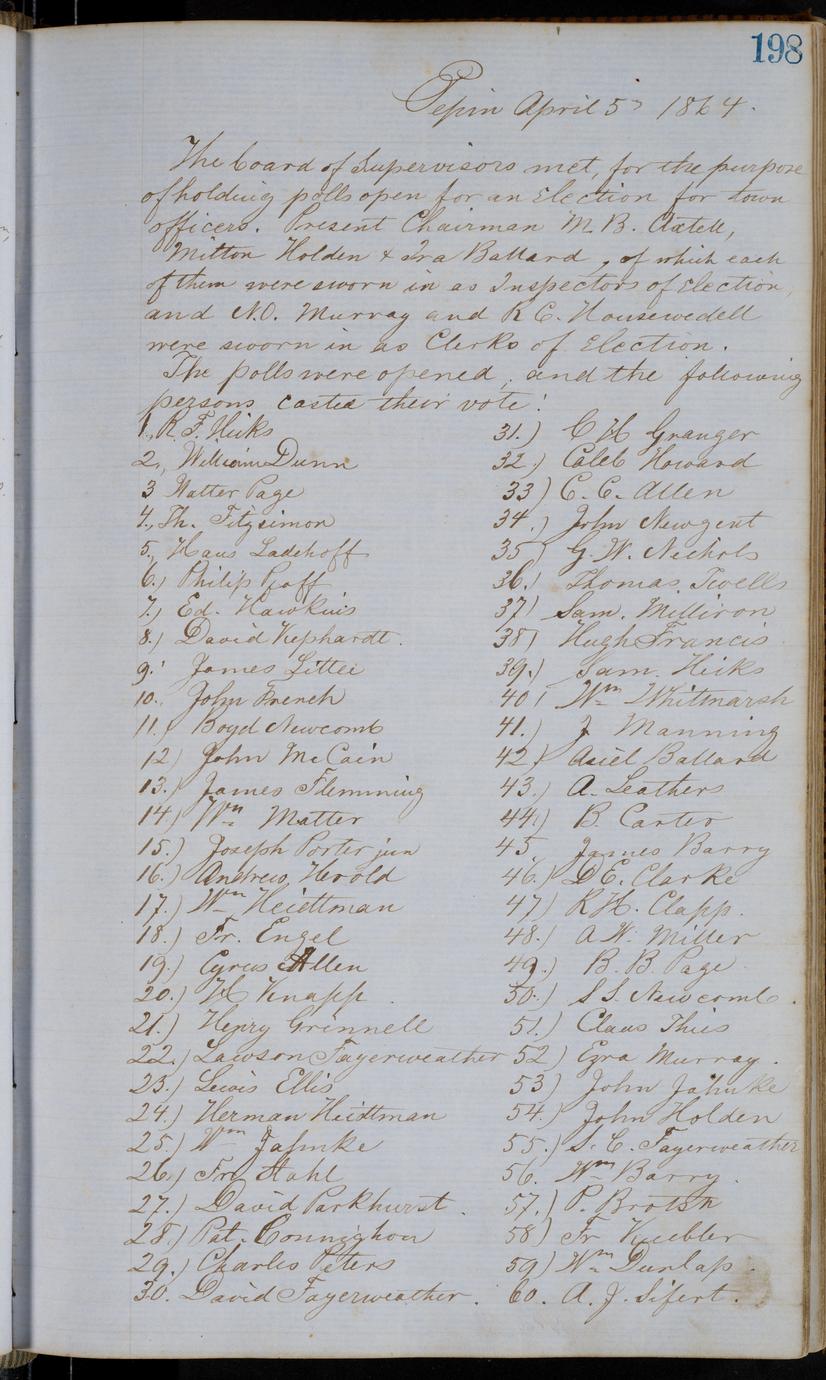 198
Pepin April 5th 1864.
The board of Supervisors met, for the purpose
of holding polls open for an Election for town
officers. Present Chairman M. B. Axtell,
Milton Holden & Ira Ballard, of which each
of them were sworn in as Inspectors of Election,
and N.O. Murray and R C. Housewedell
were sworn in as Clerks of Election.
The polls were opened, and the following
persons casted their vote:
1., R. F. Hicks
2., William Dunn
3 Natter Page
4., Th. Fitzsimon
5., Haus Ladehoff
6.) Philip Pfaff
7.) Ed. Hawkins
8.) David Kephardt.
9. James Littei
10. John French
11.) Boyd Newcomb
12) John McCain
13.) James Flemming
14) Wm Matter
15.) Joseph Porter jun
16.) Andrew Herold
17.) Wm Heidtman
18.) Fr. Engel
19.) Cyrus Allen
20.) Knapp
21.) Henry Grinnell
22.) Lawson Fayerweather
23.) Lewis Ellis
24.) Herman Heidtman
25.) Wm Jahnke
26.) Fr. Stahl
27.) David Parkhurst.
28.) Pat. Connighon
29.) Charles Peters
30. David Fayerweather.
31.) C H Granger
32.) Caleb Howard
33) C. C. Allen
34.) John Newgent
35) G. W. Nichols
36.) Thomas Twells
37) Sam. Milliron
38) Hugh Francis
39.) Sam. Hicks
40) Wm Whitmarsh
41.) J Manning
42) Asiel Ballard
43.) A. Leathers
44) B. Carter
45. James Barry
46.) D E. Clarke
47) R H. Clapp.
48.) A W. Miller
49.) B. B. Page
50.) S S. Newcomb.
51.) Claus Thies
52) Ezra Murray.
53) John Jahnke
54.) John Holden
55.) S. C. Fayerweather
56. Wm Barry.
57.) P. Brotsh
58) Fr Kuebler
59) Wm Dunlap.
60. A. J. Sifert.